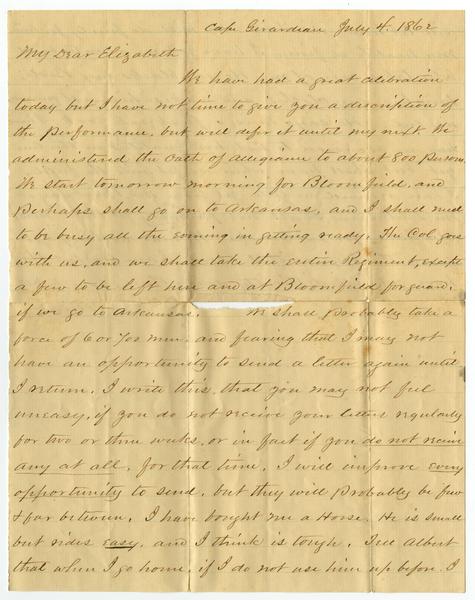 Cape Girardeau July 4. 1862
My Dear Elizabeth
We have had a great celebration
today but I have not time to give you a description of
the Performance. but will defer it until my next. We
administered the Oath of Allegiance to about 800 Persons.
We start tomorrow morning for Bloomfield, and
Perhaps shall go on to Arkansas, and I shall need
to be busy all the evening in getting ready. The Col. goes
with us, and we shall take the entire Regiment, except
a few to be left here and at Bloomfield for guard.
if we go to Arkansas. We shall Probably take a
force of 6 or 700 men. and fearing that I may not
have an opportunity to send a letter again until
I return. I write this, that you may not feel
uneasy, if you do not receive your letters regularly
for two or three weeks, or in fact if you do not receive
any at all, for that time. I will improve every
opportunity to send, but they will Probably be few
& far between. I have bought me a Horse. He is small
but rides easy, and I think is tough. Tell Albert
that when I go home, if I do not use him up before. I